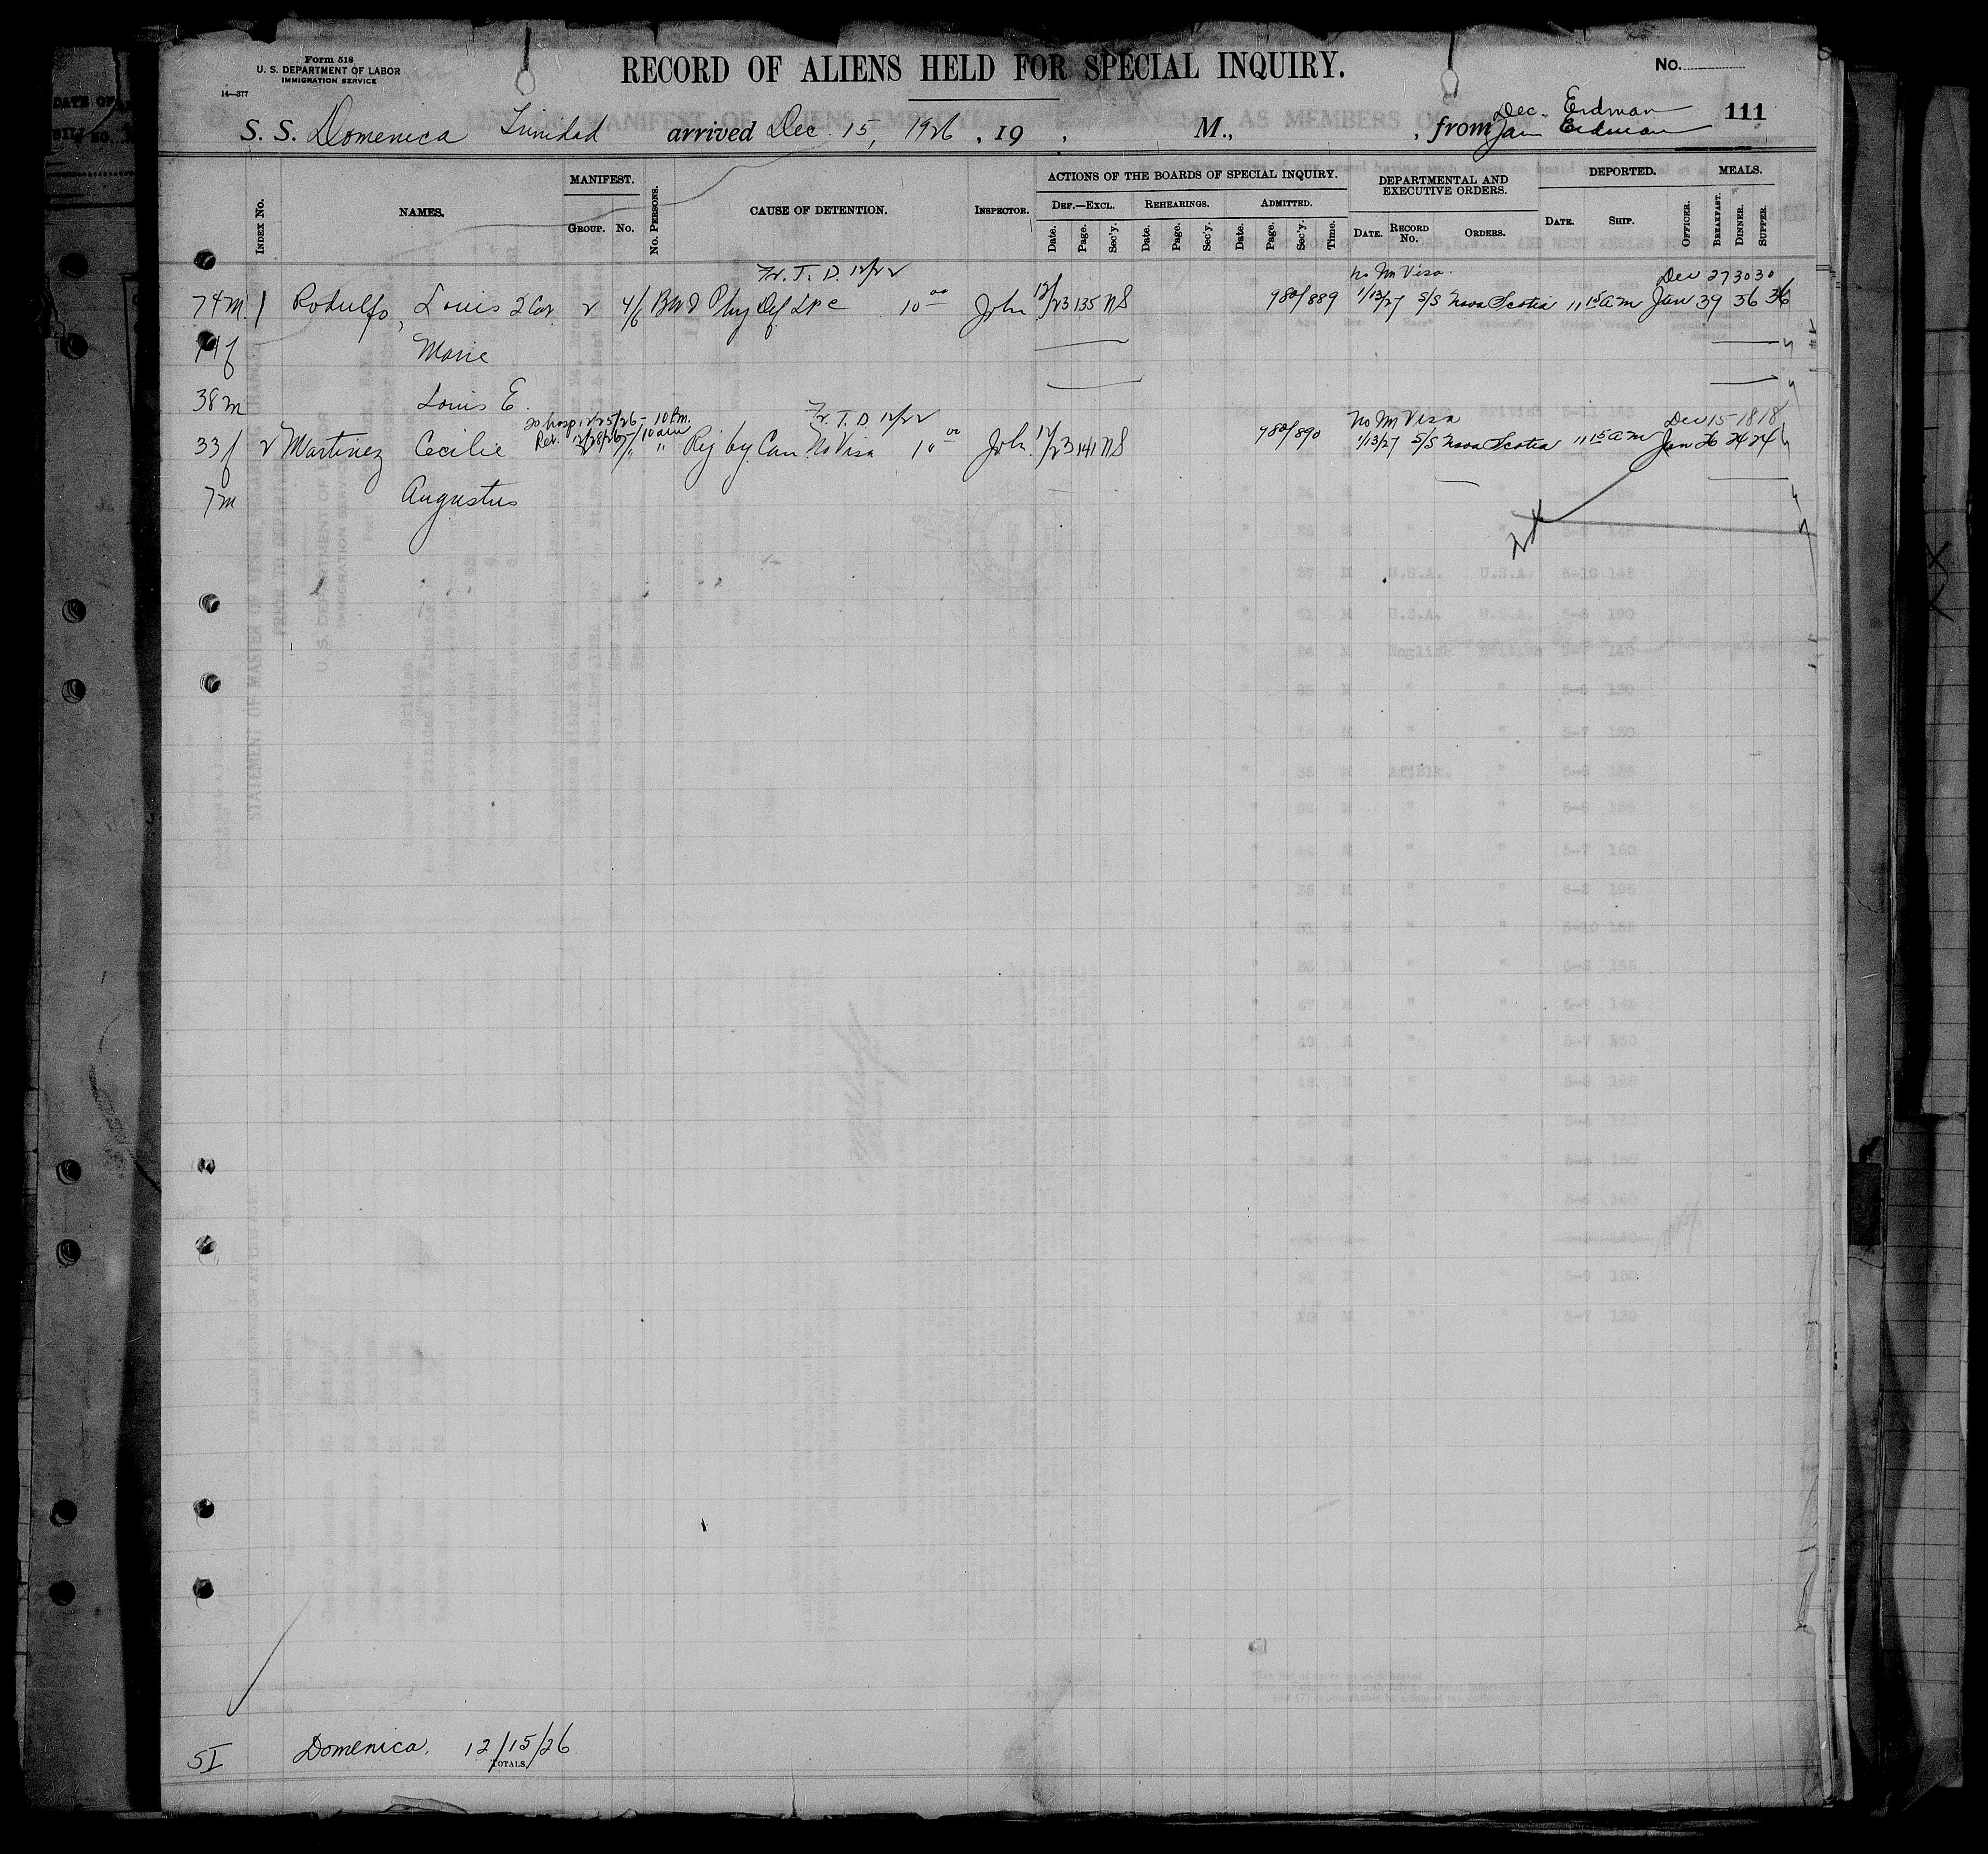 Form 518
U. S. DEPARTMENT OF LABOR
IMMIGRATION SERVICE
14—377
RECORD OF ALIENS HELD FOR SPECIAL INQUIRY.
No.
111
Dec. Erdman
S. S. Domenica Trinidad arrived Dec. 15, 1926, 19 , M., , from Jan Erdman
INDEX No.
NAMES.
MANIFEST.
GROUP. No.
No. PERSONS.
CAUSE OF DETENTION.
INSPECTOR.
ACTIONS OF THE BOARDS OF SPECIAL INQUIRY.
DEF.—EXCL. REHEARINGS. ADMITTED.
Date. Page. Sec'y. Date. Page. Sec'y. Date. Page. Sec'y. Time.
DEPARTMENTAL AND EXECUTIVE ORDERS.
DATE. RECORD No. ORDERS.
DEPORTED.
DATE. SHIP. OFFICER.
MEALS.
BREAKFAST. DINNER. SUPPER.
T. D. 12/22 No Im Visa. Dec 27 30 30
74m 1 Rodulfo, Louis 2 4/6 Phy Def LPC 10 00 John 12/23 135 NS 980/889 1/13/27 S/S Nova Scotia 11 15 am Jan 39 36 36
74f Marie
38m Louis E.
To hosp 12/25/26 - 10 Pm. T. D. 12/22 No Im Visa Dec 15 18 18
Ret. 12/28/26 10 am
33f 2 Martinez Cecilie Rej by Can No Visa 10 00 John 12/23 141 NS 980/890 1/13/27 S/S Nova Scotia 11 15 am Jan 26 24 24
7m Augustus
5I Domenica. 12/15/26
TOTALS